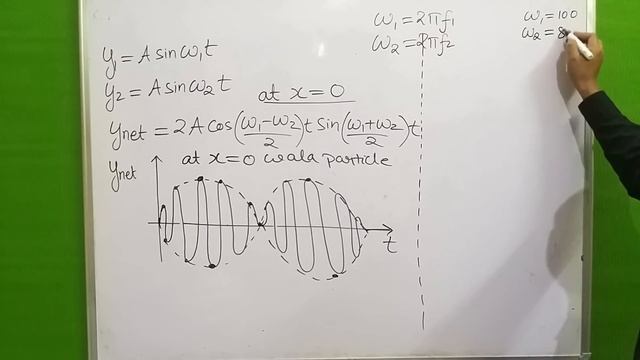 y₁ = A sin ω₁t
y₂ = A sin ω₂t
at x = 0
ynet = 2A cos(ω₁-ω₂/2)t sin(ω₁+ω₂/2)t
at x = 0 wala particle
ynet
t
ω₁ = 2πf₁
ω₂ = 2πf₂
ω₁ = 100
ω₂ = 8